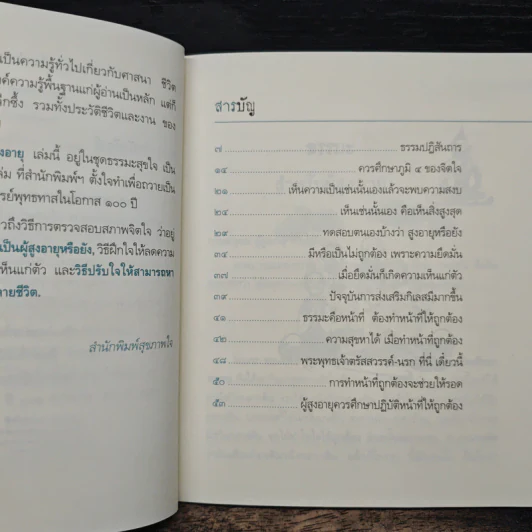 เป็นความรู้ทั่วไปเกี่ยวกับศาสนา ชีวิต
ค์ความรู้พื้นฐานแก่ผู้อ่านเป็นหลัก แต่ก็
ึกซึ้ง รวมทั้งประวัติชีวิตและงาน ของ
สูงอายุ เล่มนี้ อยู่ในชุดธรรมะสุขใจ เป็น
ล่ม ที่สำนักพิมพ์ฯ ตั้งใจทำเพื่อถวายเป็น
ารย์พุทธทาสในโอกาส ๑๐๐ ปี
วถึงวิธีการตรวจสอบสภาพจิตใจ ว่าอยู่
เป็นผู้สูงอายุหรือยัง, วิธีฝึกใจให้ลดความ
เห็นแก่ตัว และวิธีปรับใจให้สามารถหา
ายชีวิต.
สำนักพิมพ์สุขภาพใจ
สารบัญ
๗ ธรรมปฏิสันถาร
๑๔ ควรศึกษาภูมิ ๔ ของจิตใจ
๒๑ เห็นความเป็นเช่นนั้นเองแล้วจะพบความสงบ
๒๔ เห็นเช่นนั้นเอง คือเห็นสิ่งสูงสุด
๒๙ ทดสอบตนเองบ้างว่า สูงอายุหรือยัง
๓๔ มีหรือเป็นไม่ถูกต้อง เพราะความยึดมั่น
๓๗ เมื่อยึดมั่นก็เกิดความเห็นแก่ตัว
๓๙ ปัจจุบันการส่งเสริมกิเลสมีมากขึ้น
๔๑ ธรรมะคือหน้าที่ ต้องทำหน้าที่ให้ถูกต้อง
๔๒ ความสุขหาได้ เมื่อทำหน้าที่ถูกต้อง
๔๘ พระพุทธเจ้าตรัสสวรรค์-นรก ที่นี่ เดี๋ยวนี้
๕๐ การทำหน้าที่ถูกต้องจะช่วยให้รอด
๕๓ ผู้สูงอายุควรศึกษาปฏิบัติหน้าที่ให้ถูกต้อง